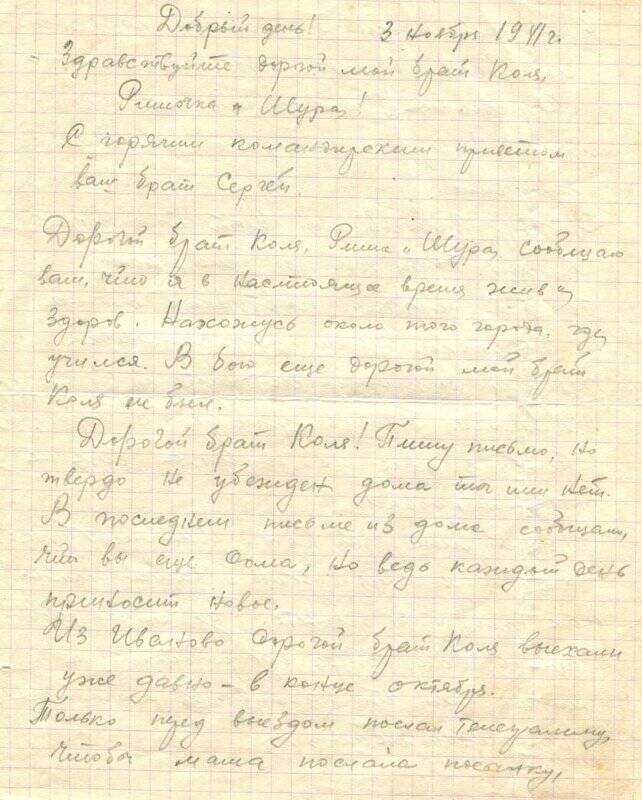 Добрый день! 3 ноября 1941 г.
Здравствуйте дорогой мой брат Коля,
Риммочка и Шура!
С горячим командирским приветом
ваш брат Сергей.
Дорогой брат Коля, Римма и Шура, сообщаю
вам, что я в настоящее время жив и
здоров. Нахожусь около того города, где
учился. В бою еще дорогой мой брат
Коля не был.
Дорогой брат Коля! Пишу письмо, но
твердо не убежден дома ты или нет.
В последнем письме из дома сообщали,
что вы еще дома, но ведь каждый день
приносит новое.
Из Иваново дорогой брат Коля выехали
уже давно – в конце октября.
Только перед выездом послал телеграмму,
чтобы мама послала посылку,